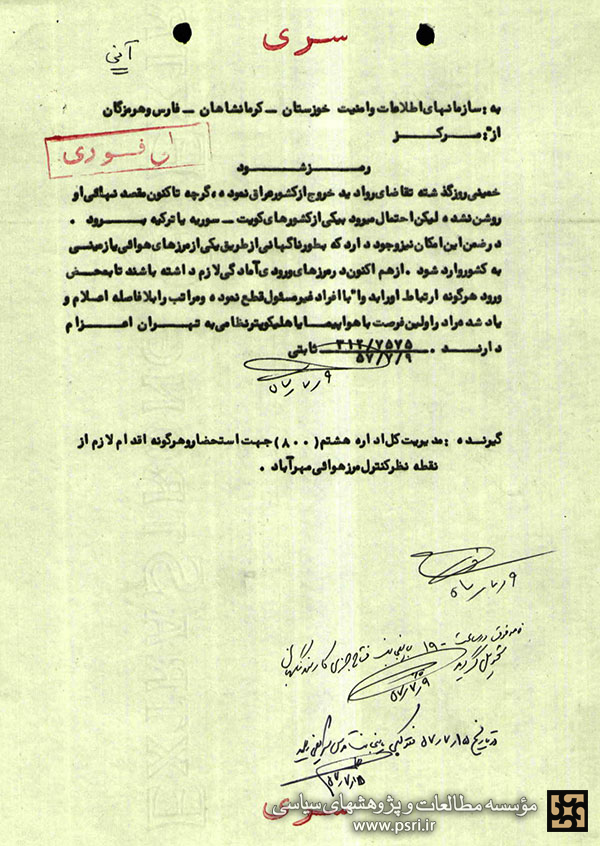 سری
آنی
به : سازمانهای اطلاعات و امنیت خوزستان ــ کرمانشاهان ــ فارس و هرمزگان
از : مرکز
فوری
رمز شود
خمینی روز گذشته تقاضای روادید خروج از کشور عراق نموده ، گرچه تاکنون مقصد نهائی او
روشن نشده لیکن احتمال میرود بیکی از کشورهای کویت ــ سوریه یا ترکیه برود .
در ضمن این امکان نیز وجود دارد که بطور ناگهانی از طریق یکی از مرزهای هوائی یا زمینی
به کشور وارد شود . از هم اکنون در مرزهای ورودی آمادگی لازم داشته باشند تا بمحض
ورود هرگونه ارتباط او را بدواً با افراد غیر مسئول قطع نموده و مراتب را بلافاصله اعلام و
یاد شده را در اولین فرصت با هواپیما یا هلیکوپتر نظامی به تهران اعزام
دارند . ۳۱۲/۷۵۷۵ ثابتی
۵۷/۷/۹
۵۷/۷/۹
گیرنده : مدیریت کل اداره هشتم (۸۰۰) جهت استحضار و هرگونه اقدام لازم از
نقطه نظر کنترل مرز هوائی مهرآباد .
۵۷/۷/۹
نامه فوق در ساعت ۱۹۰۰
تحویل گردید
۵۷/۷/۹
در تاریخ ۵۷/۷/۱۵
۵۷/۷/۱۵
سری
مؤسسه مطالعات و پژوهشهای سیاسی
www.psri.ir